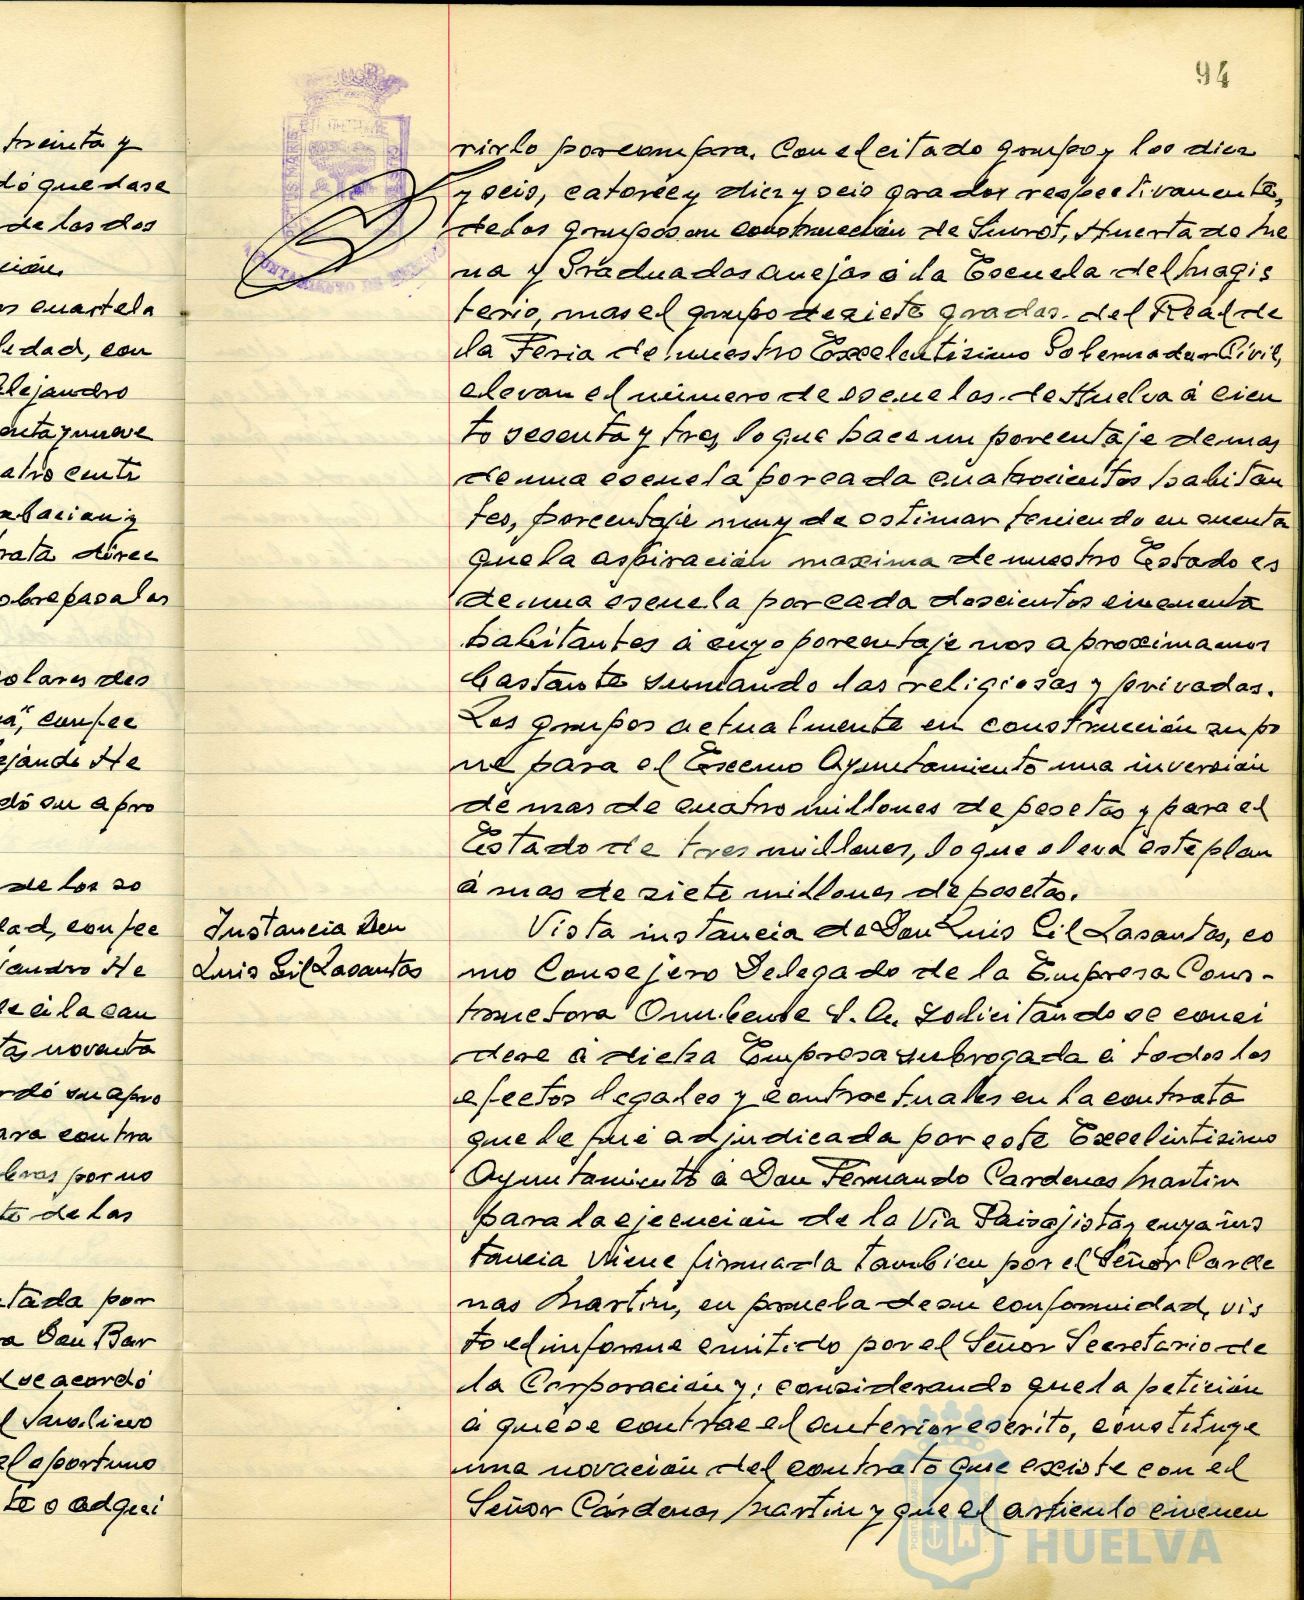 94
treinta y
dó quedase
de los dos
ción
os cuartela
ledad, con
Alejandro
enta y nueve
atro centi
obacion y
rata direc
obrepasa los
olares des
na", confec
ejandi He
dó su apro
de los so
dad, confec
jandro He
de á la can
tas noventa
rdó su apro
ara contra
bras por no
te de las
ntada por
ra Don Bar
l se acordó
el oportuno
te o adqui
rirlo por compra. Con el citado grupo y los diez
y seis, catorce y diez y seis grados respectivamente,
de los grupos en construcción de Siurot, Huerta de Me
na y Graduadas anejas á la Escuela del Magis
terio, mas el grupo de siete grados del Real de
la Feria de nuestro Excelentisimo Gobernador Civil,
elevan el número de escuelas de Huelva á cien
to sesenta y tres, lo que hace un porcentaje de mas
de una escuela por cada cuatrocientos habitan
tes, porcentaje muy de estimar teniendo en cuenta
que la aspiración maxima de nuestro Estado es
de una escuela por cada doscientos cincuenta
habitantes á cuyo porcentaje nos aproximamos
bastante sumando las religiosas y privadas.
Los grupos actualmente en construcción supo
ne para el Excmo Ayuntamiento una inversión
de mas de cuatro millones de pesetas y para el
Estado de tres millones, lo que eleva este plan
á mas de siete millones de pesetas.
Instancia Don
Luis Gil Lasantas
Vista instancia de Don Luis Gil Lasantas, co
mo Consejero Delegado de la Empresa Cons-
tructora Onubense S.A. solicitando se consi
dere á dicha Empresa subrogada á todos los
efectos legales y contractuales en la contrata
que le fué adjudicada por este Excelentisimo
Ayuntamiento á Don Fernando Cardenas Martin
para la ejecución de la Via Paisajista, cuya ins
tancia viene firmada tambien por el Señor Carde
nas Martin, en prueba de su conformidad, vis
to el informe emitido por el Señor Secretario de
la Corporación y; considerando que la petición
á que se contrae el anterior escrito, constituye
una novación del contrato que existe con el
Señor Cárdenas Martin y que el articulo cincuen
Ayuntamiento de
HUELVA